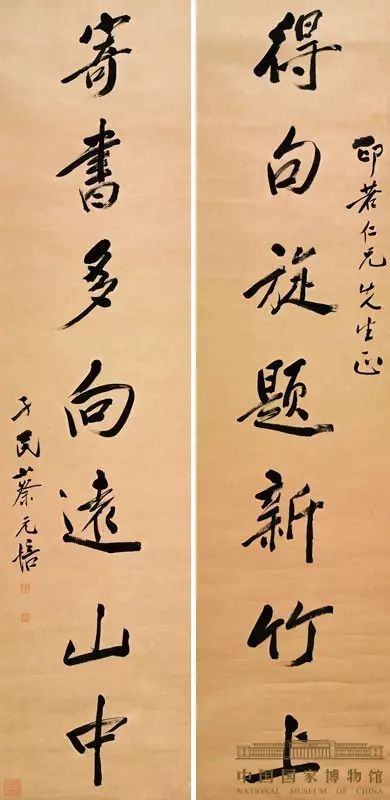 印若仁兄先生正
得句旋题新竹上
寄書多向遠山中
孑民蔡元培
中国国家博物馆
NATIONAL MUSEUM OF CHINA